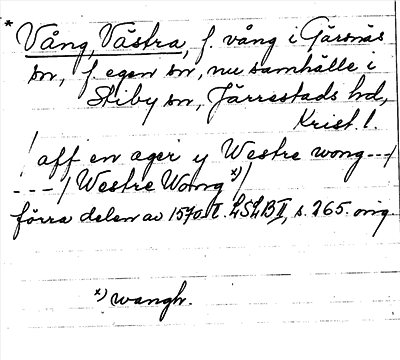 * Vång, Västra, f. vång i Gärsnäs
sn, f. egen sn, nu samhälle i
Stiby sn, Järrestads hd,
Krist. l.
/ aff en ager y Westre wong---/
---/ Westre Wong x)/
förra delen av 1570-t. LSLB II, s. 265. orig.
x) wangh.